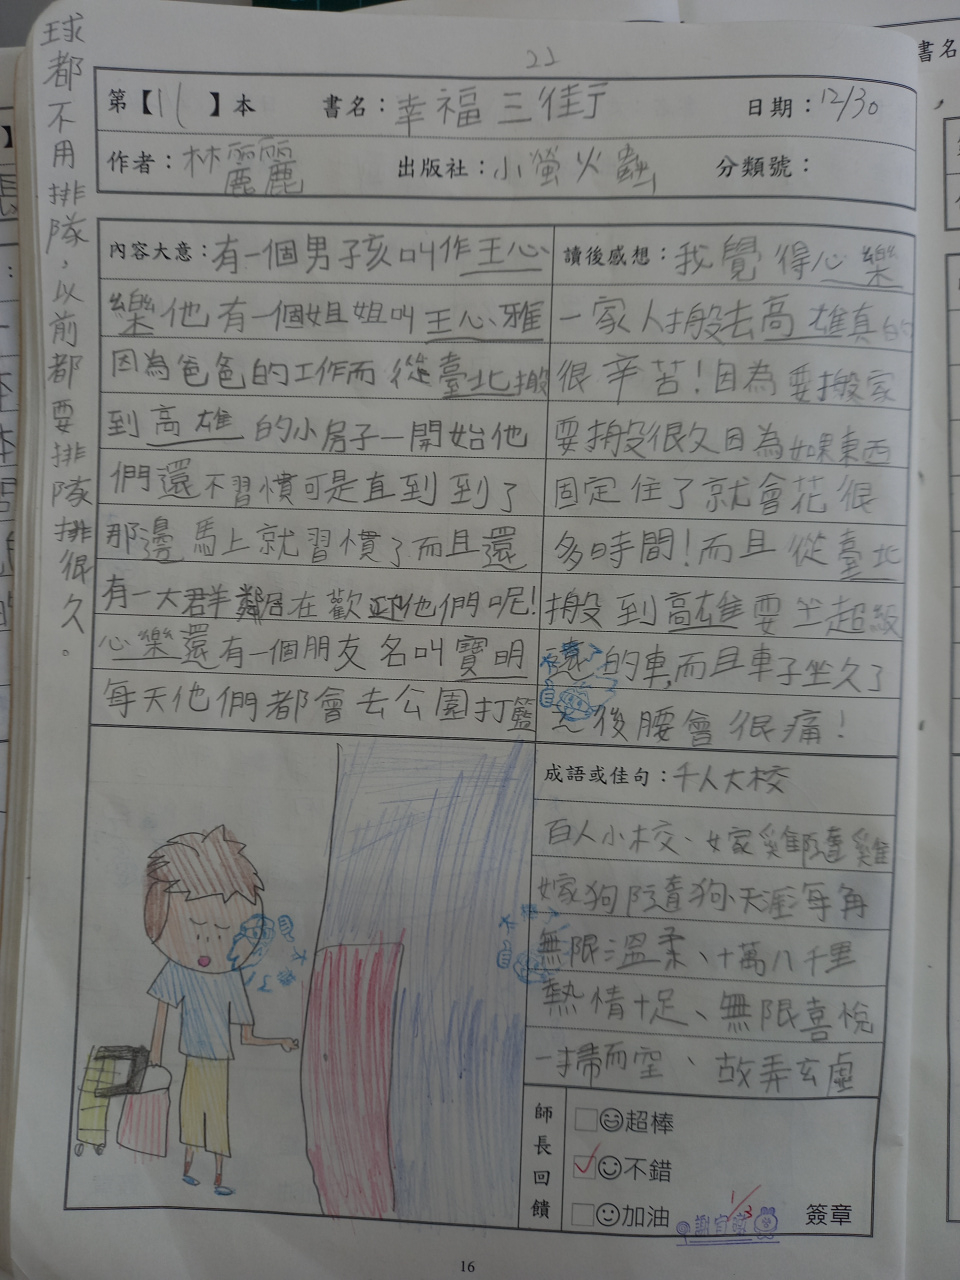 22
第【11】本 書名：幸福三街 日期：12/30
作者：林麗麗 出版社：小螢火蟲 分類號：
內容大意：有一個男子孩叫作王心
樂他有一個姐姐叫王心雅
因為爸爸的工作而從臺北搬
到高雄的小房子一開始他
們還不習慣可是直到到了
那邊馬上就習慣了而且還
有一大群鄰居在歡迎他們呢!
心樂還有一個朋友名叫寶明
每天他們都會去公園打籃
球都不用排隊，以前都要排隊排很久。
讀後感想：我覺得心樂
一家人搬去高雄真的
很辛苦!因為要搬家
要搬很久因為如果東西
固定住了就會花很
多時間!而且從臺北
搬到高雄要坐超級
遠的車,而且車子坐久了
之後腰會很痛!
成語或佳句：千人大校
百人小校、嫁雞隨雞
嫁狗隨狗、天涯海角
無限溫柔、十萬八千里
熱情十足、無限喜悅
一掃而空、故弄玄虛
師長回饋
超棒
不錯
加油
簽章
1/3
16
書名